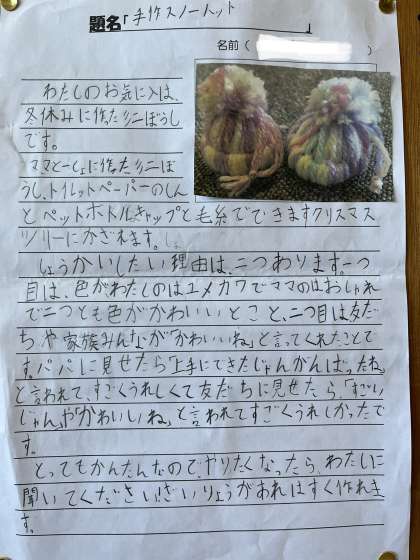 題名「手作スノーハット」
名前(
わたしのお気に入は、
冬休みに作ったミニぼうし
です。
ママと一しょに作ったミニぼ
うし、トイレットペーパーのしん
とペットボトルキャップと毛糸でできますクリスマス
ツリーにかざれます。
しょうかいしたい理由は、二つあります。一つ
目は、色がわたしのはユメカワでママのはおしゃれ
で二つとも色がかわいいとこと、二つ目は友だ
ちや家族みんなが「かわいいね」と言ってくれたことで
す。パパに見せたら「上手にできたじゃんがんばったね」
と言われて、すごくうれしくて友だちに見せたら、「すごい
じゃん」や「かわいいね」と言われてすごくうれしかったで
す。
とってもかんたんなので、やりたくなったら、わたしに
聞いてください!ざいりょうがあればすぐ作れま
す。